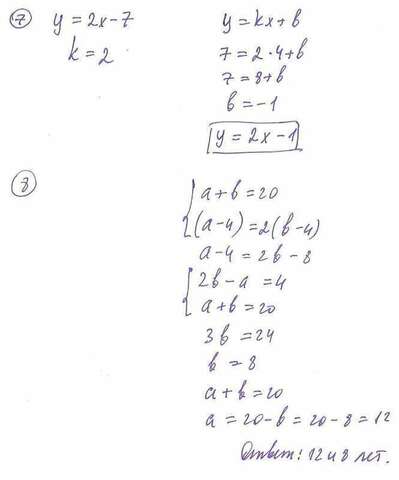 ⑦ y = 2x-7
k = 2
y = kx + b
7 = 2·4+b
7 = 8+b
b = -1
y = 2x-1
⑧
{ a+b = 20
(a-4) = 2(b-4)
a-4 = 2b-8
{ 2b-a = 4
a+b = 20
3b = 24
b = 8
a+b = 20
a = 20-b = 20-8 = 12
Ответ: 12 и 8 лет.